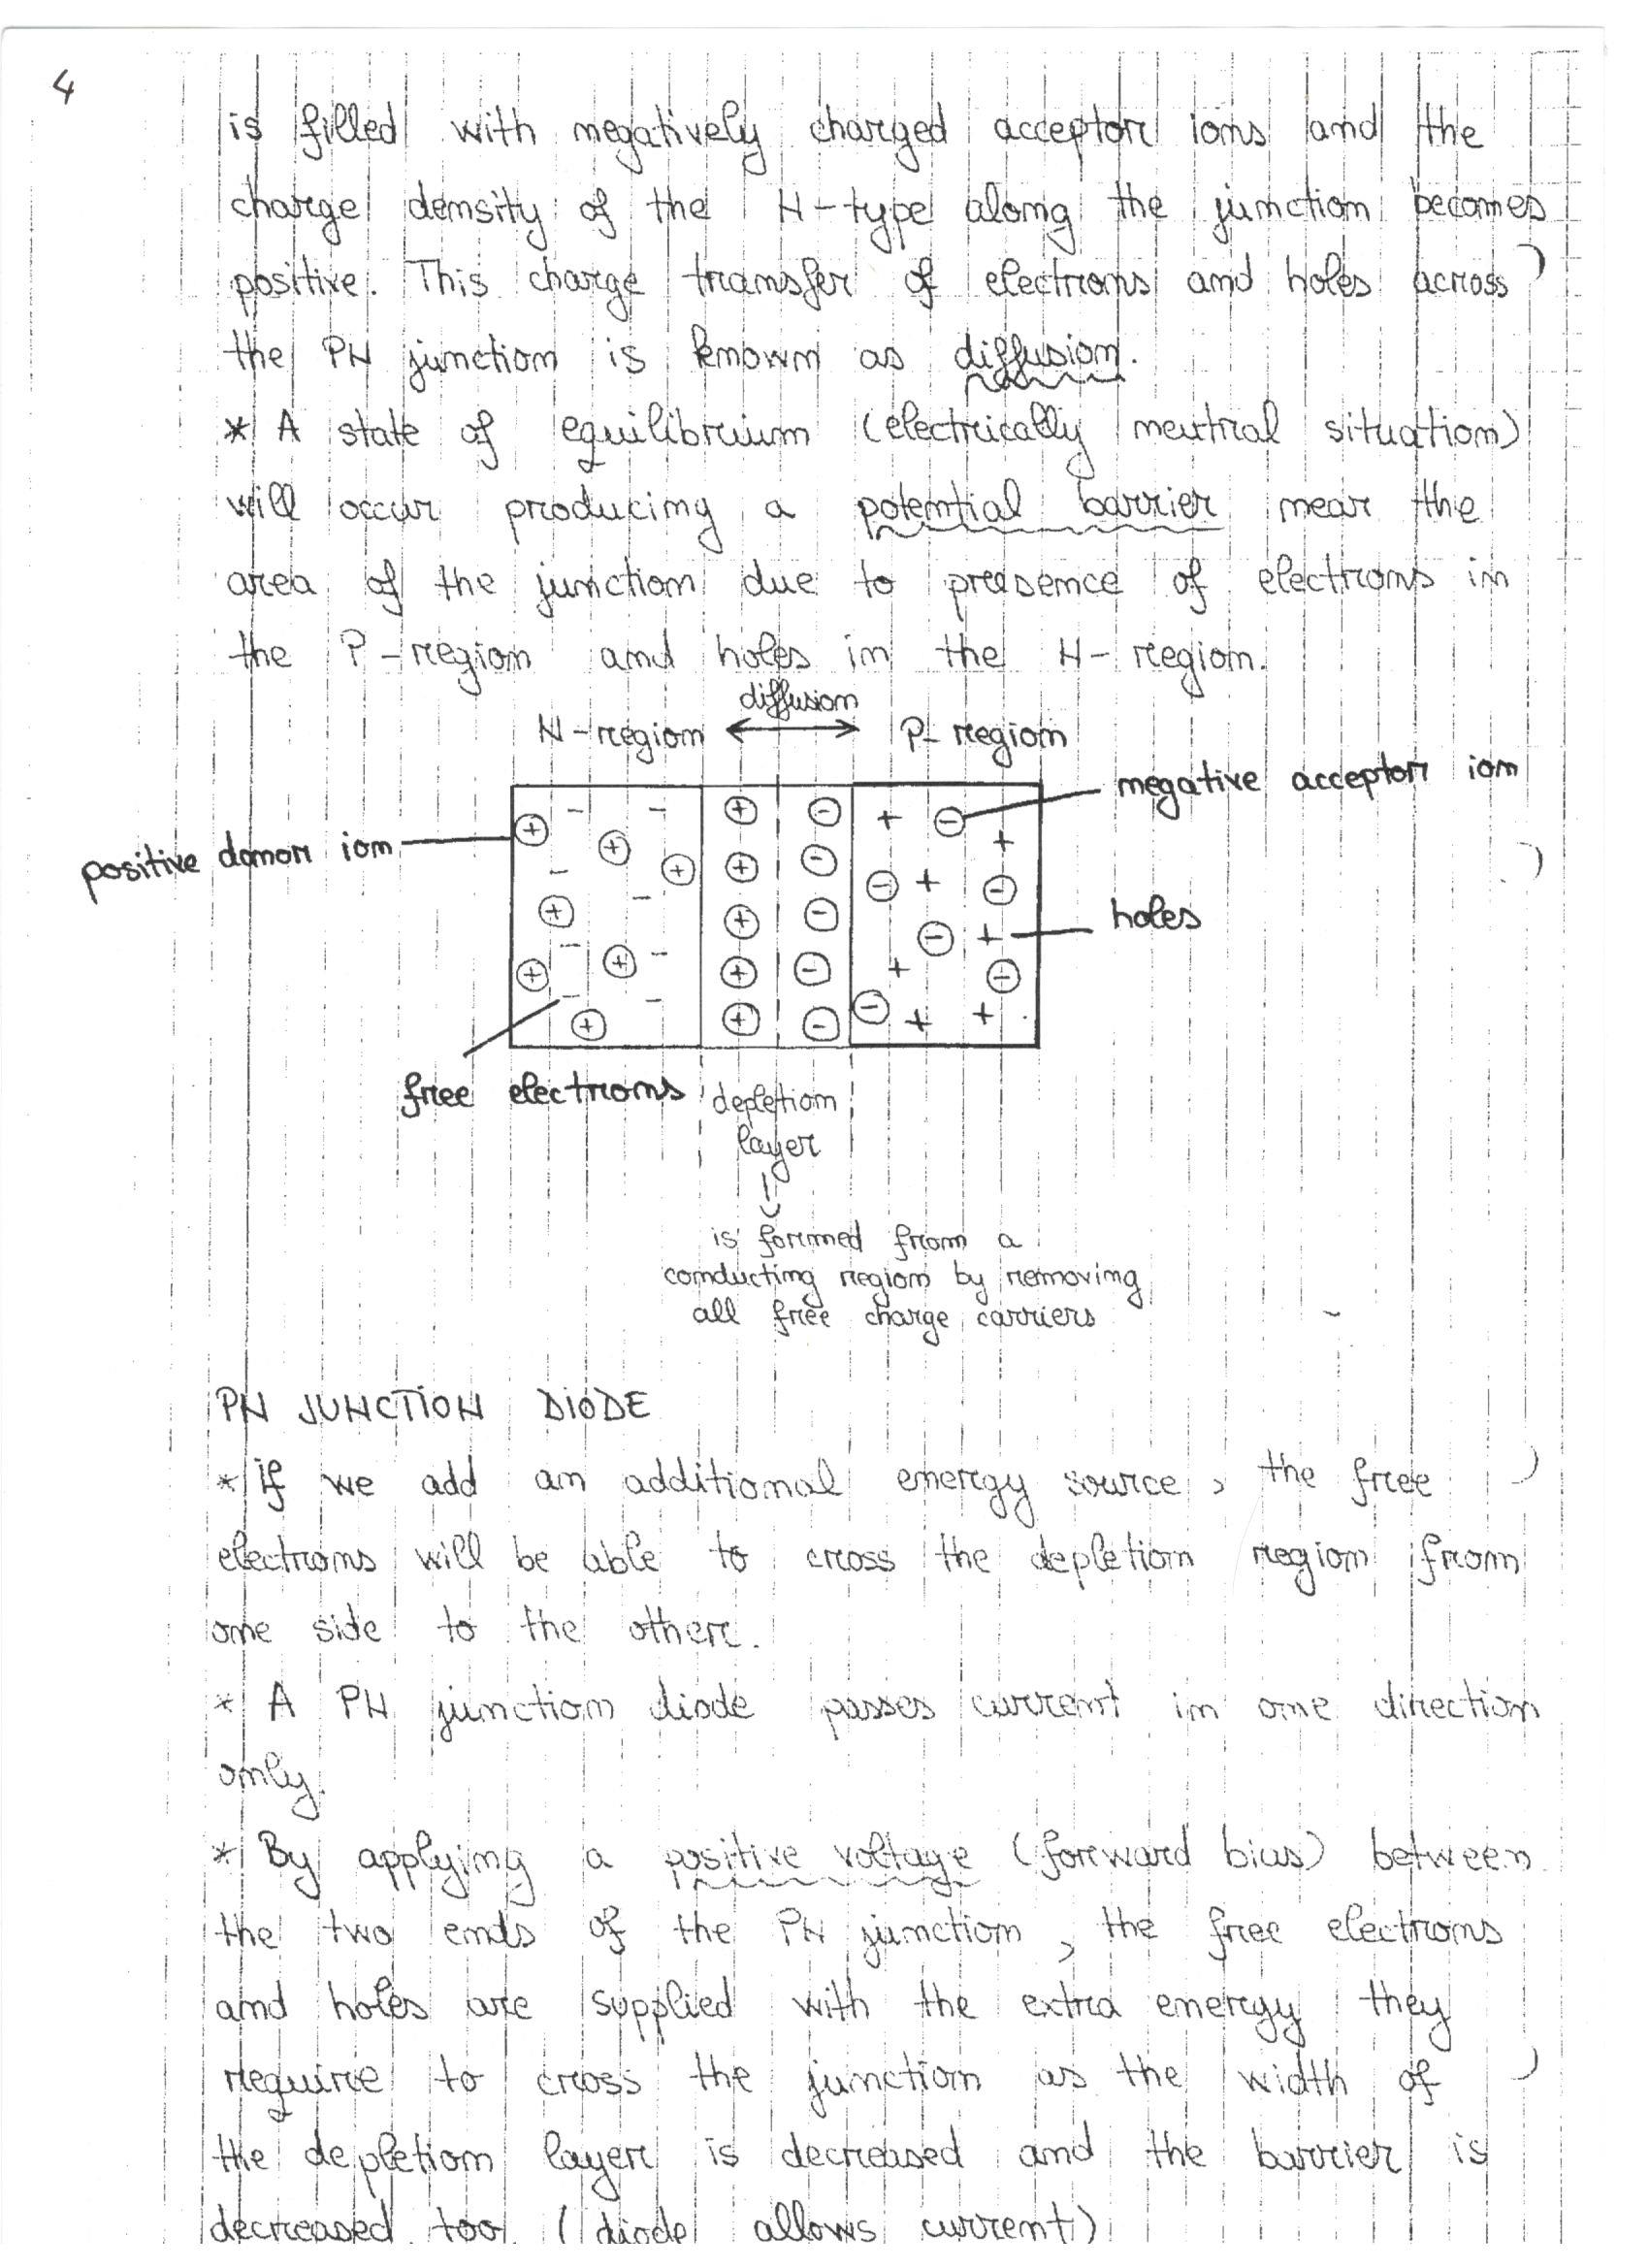 4
is filled with negatively charged acceptor ions and the
charge density of the N-type along the junction becomes
positive. This charge transfer of electrons and holes across
the PN junction is known as diffusion.
* A state of equilibrium (electrically neutral situation)
will occur producing a potential barrier near the
area of the junction due to presence of electrons in
the P-region and holes in the N-region.
diffusion
N-region P-region
negative acceptor ion
positive donor ion
holes
free electrons
depletion
layer
is formed from a
conducting region by removing
all free charge carriers
PN JUNCTION DIODE
* If we add an additional energy source, the free
electrons will be able to cross the depletion region from
one side to the other.
* A PN junction diode passes current in one direction
only.
* By applying a positive voltage (forward bias) between
the two ends of the PN junction, the free electrons
and holes are supplied with the extra energy they
require to cross the junction as the width of
the depletion layer is decreased and the barrier is
decreased too. (diode allows current)